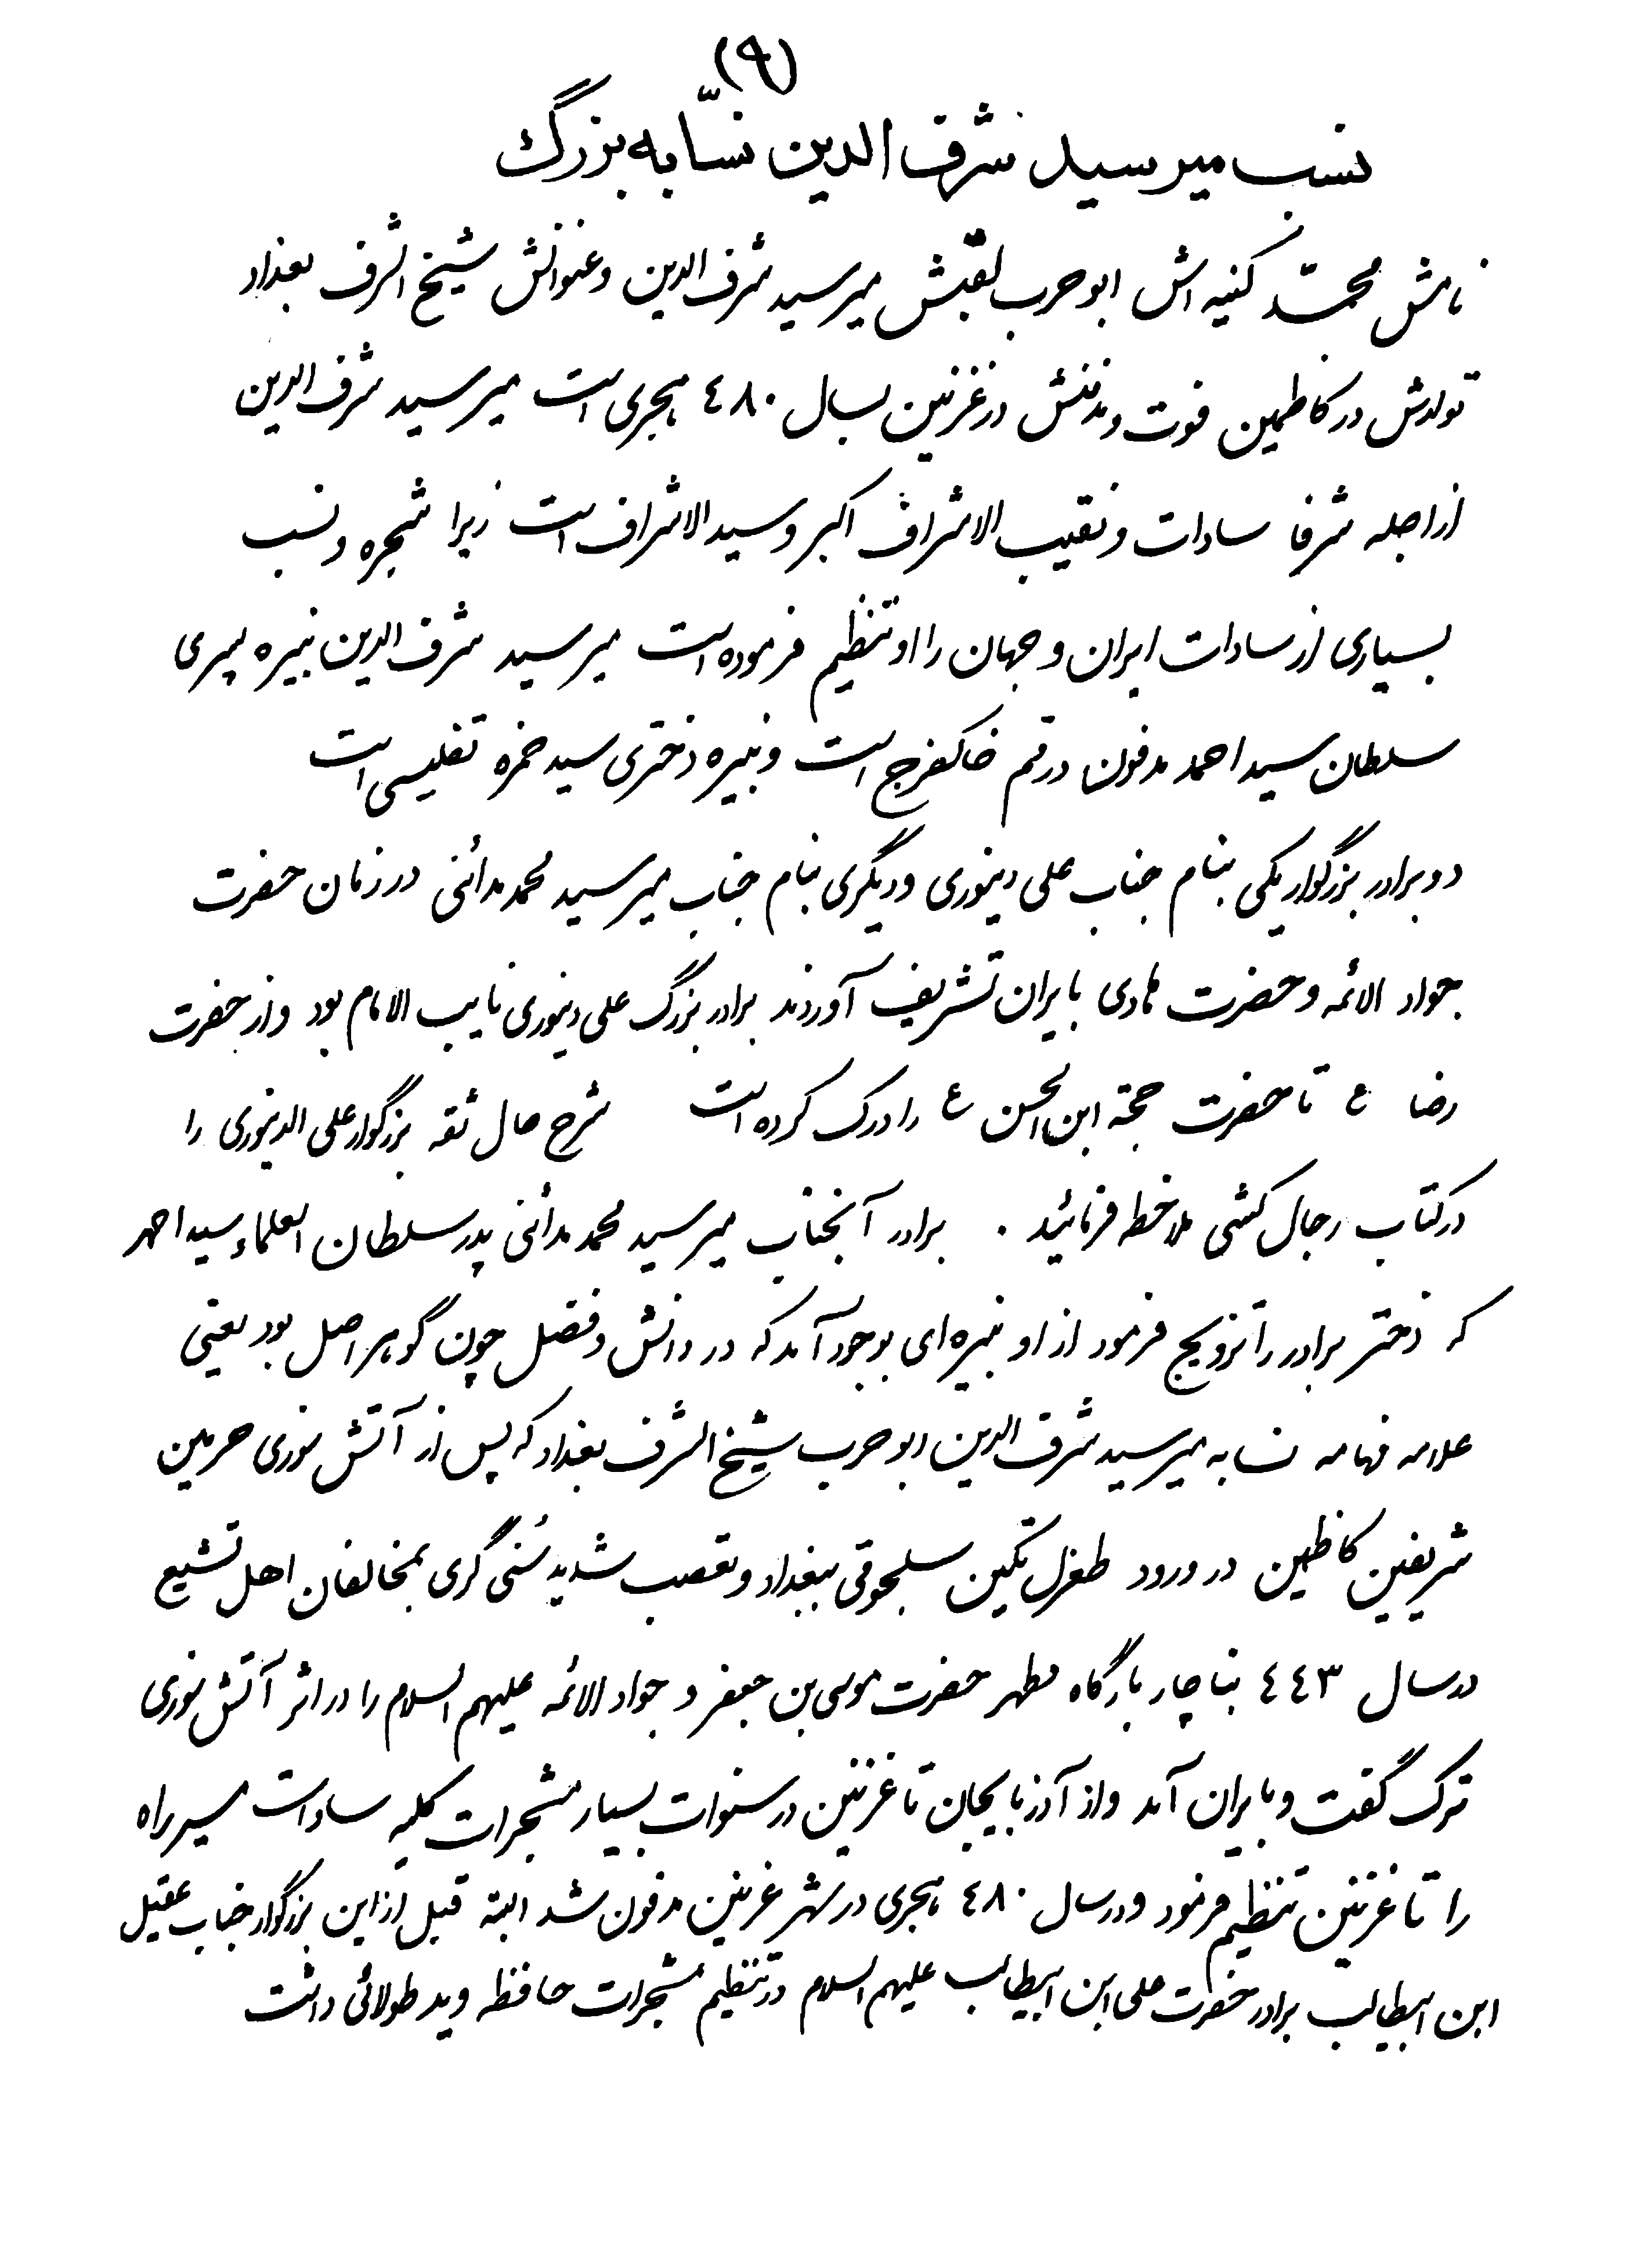 (۹)
نسب میر سید شرف الدین نسّابه بزرگ
نامش محمّد کنیه اش ابو حرب لقبش میر سید شرف الدین و عنوانش شیخ الشرف بغداد
تولدش در کاظمین فوت و مدفنش در غزنین بسال ۴۸۰ هجری است میر سید شرف الدین
از اجله شرفا سادات و نقیب الاشراف اکبر و سید الاشراف است زیرا شجره و نسب
بسیاری از سادات ایران و جهان را او تنظیم فرموده است میر سید شرف الدین نبیره پسری
سلطان سید احمد مدفون در قم خاکفرج است و نبیره دختری سید حمزه تفلیسی است
دو برادر بزرگوار یکی بنام جناب علی دینوری و دیگری بنام جناب میر سید محمد مدائنی در زمان حضرت
جواد الائمه و حضرت هادی بایران تشریف آوردند برادر بزرگ علی دینوری نایب الامام بود و از حضرت
رضا ع تا حضرت حجة ابن الحسن ع را درک کرده است شرح حال ثقه بزرگوار علی الدینوری را
در کتاب رجال کشی ملاحظه فرمائید . برادر آنجناب میر سید محمد مدائنی پدر سلطان العلماء سید احمد
که دختر برادر را تزویج فرمود از او نبیره ای بوجود آمد که در دانش و فضل چون گوهر اصل بود یعنی
علامه فهامه نسابه میر سید شرف الدین ابو حرب شیخ الشرف بغداد که پس از آتش سوزی حرمین
شریفین کاظمین در ورود طغرل تکین سلجوقی ببغداد و تعصب شدید سُنی گری بمخالفان اهل تشیع
در سال ۴۴۳ بناچار بارگاه مطهر حضرت موسی بن جعفر و جواد الائمه علیهم السلام را در اثر آتش سوزی
ترک گفت و بایران آمد و از آذربایجان تا غزنین در سنوات بسیار مشجرات کلیه سادات مسیر راه
را تا غزنین تنظیم فرمود و در سال ۴۸۰ هجری در شهر غزنین مدفون شد البته قبل از این بزرگوار جناب عقیل
ابن ابیطالب برادر حضرت علی ابن ابیطالب علیهم السلام در تنظیم مشجرات حافظه و ید طولائی داشت